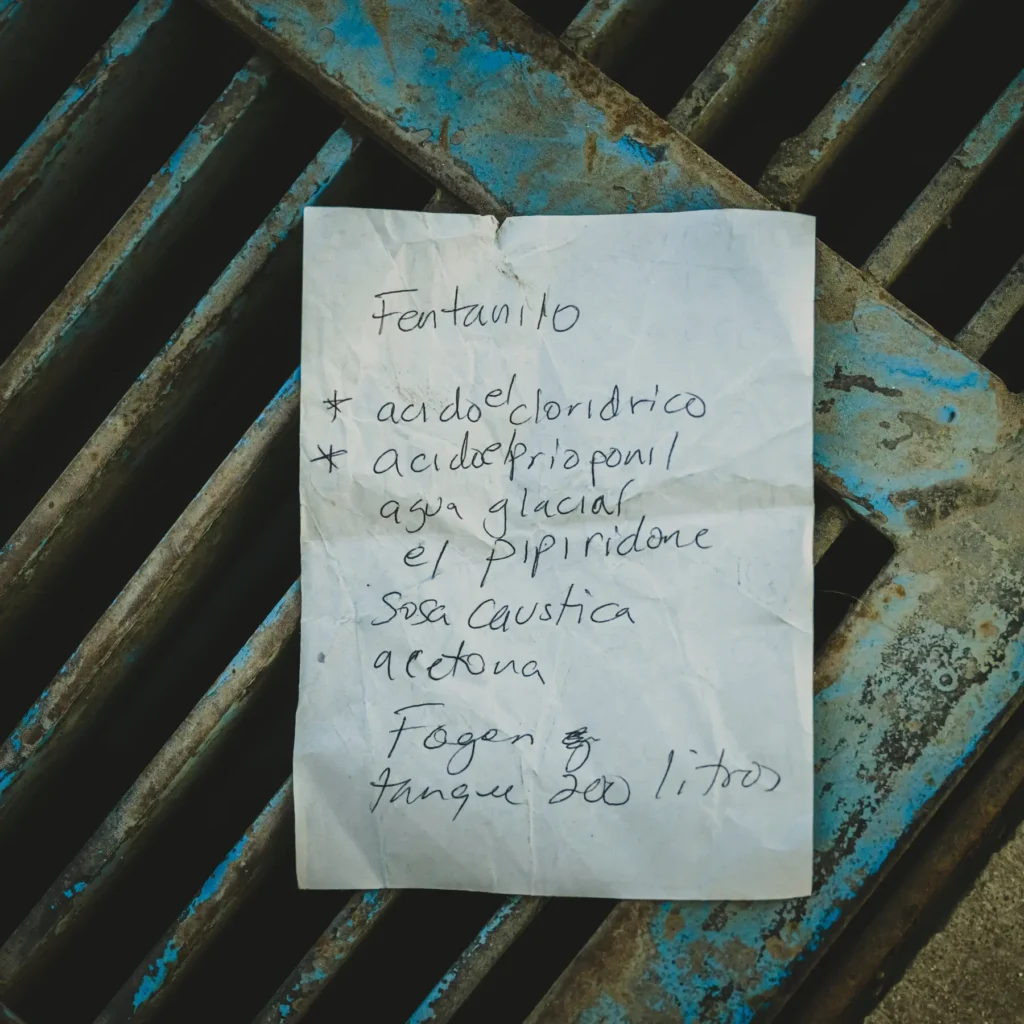 Fentanilo
* acido el cloridrico
* acido el prioponil
agua glacial
el pipiridone
Sosa caustica
acetona
Fogen
tanque 200 litros